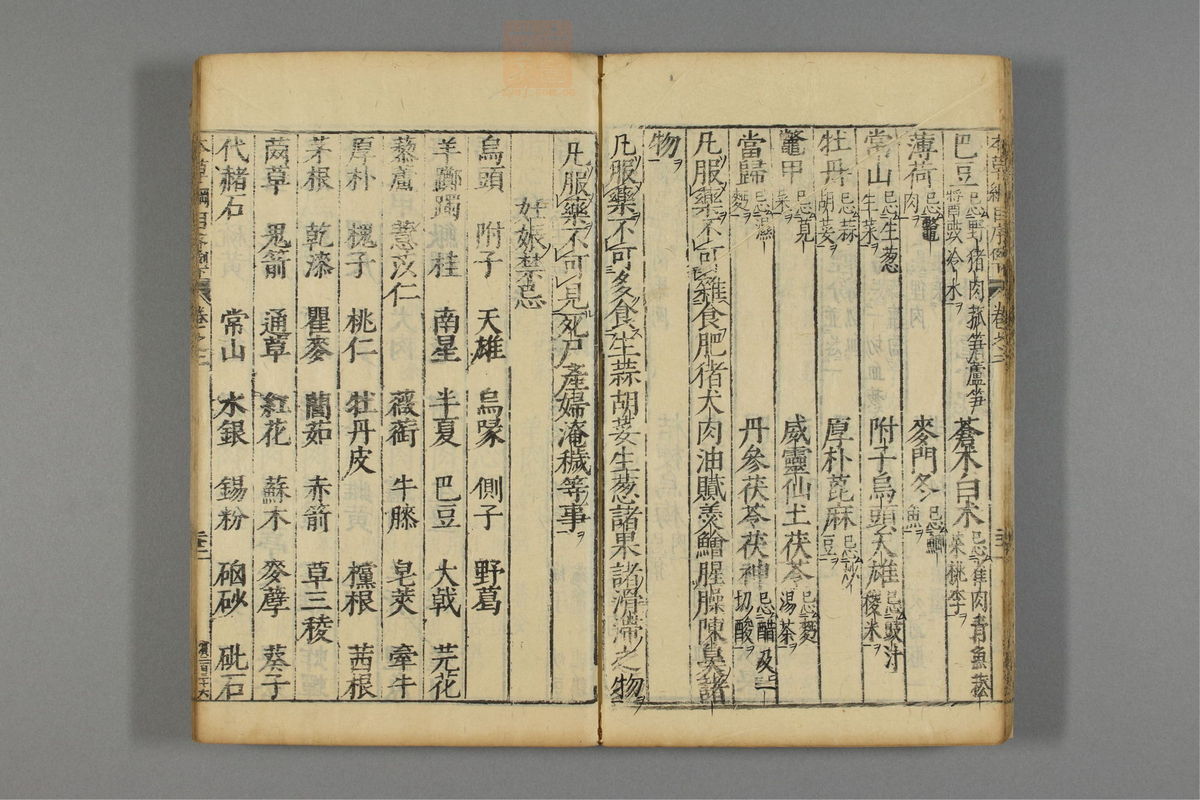 巴豆 忌野猪肉菰筍蘆筍醬豉冷水 蒼朮白朮 忌雀肉青魚菘菜桃李
薄荷 忌鼈肉 麥門冬 忌鯽魚
常山 忌生葱生菜 附子烏頭天雄 忌豉汁稷米
牡丹 忌蒜胡荽 厚朴蓖麻 忌炒豆
鼈甲 忌莧菜 威靈仙土茯苓 忌麪湯茶
當歸 忌濕麪 丹參茯苓茯神 忌醋及一切酸
凡服藥不可雜食肥猪犬肉油膩羹鱠腥臊陳臭諸
物
凡服藥不可多食生蒜胡荽生葱諸果諸滑滯之物
凡服藥不可見死尸產婦淹穢等事
妊娠禁忌
烏頭 附子 天雄 烏喙 側子 野葛
羊躑躅 桂 南星 半夏 巴豆 大戟 芫花
藜蘆 薏苡仁 薇銜 牛膝 皂莢 牽牛
厚朴 槐子 桃仁 牡丹皮 欓根 茜根
茅根 乾漆 瞿麥 䕡茹 赤箭 草三稜
䓴草 鬼箭 通草 紅花 蘇木 麥糵 葵子
代赭石 常山 水銀 錫粉 硇砂 砒石